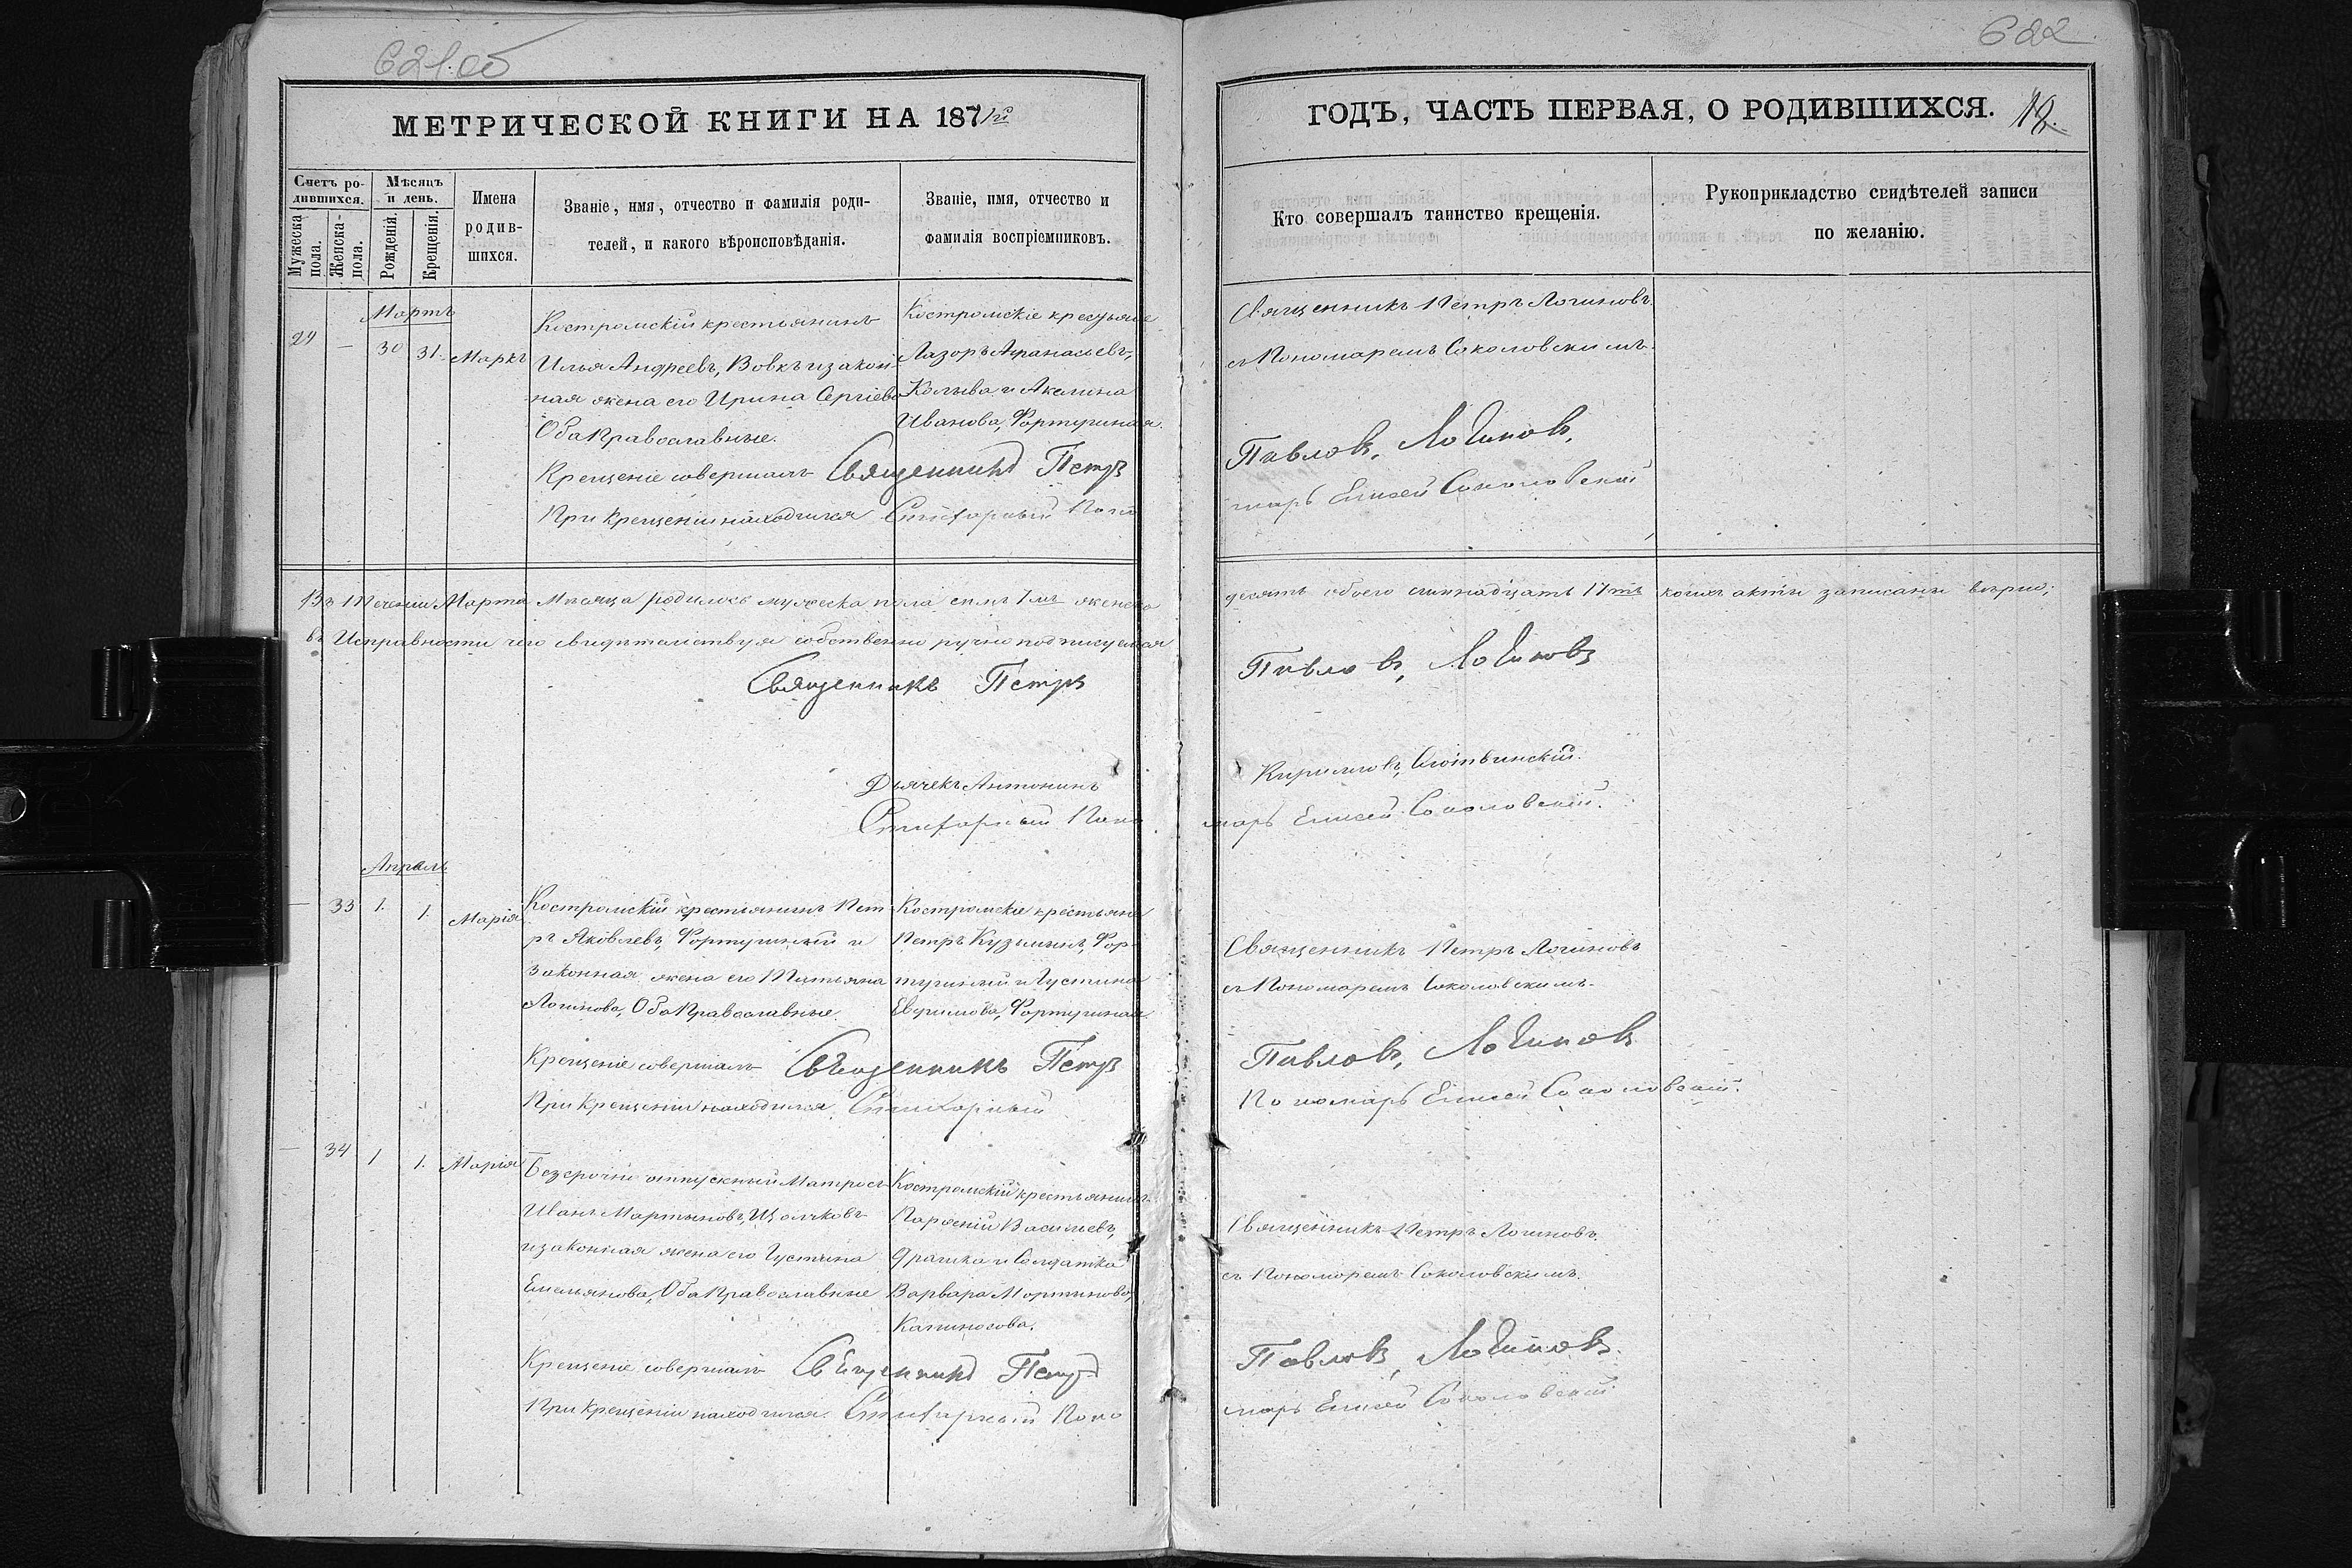 621.об
МЕТРИЧЕСКОЙ КНИГИ НА 1871й
Счетъ ро-
дившихся.
Мужеска
пола.
Женска-
пола.
Мѣсяцъ
и день.
Рожденія.
Крещенія.
Имена
родив-
шихся.
Званіе, имя, отчество и фамилія роди-
телей, и какого вѣроисповѣданія.
Званіе, имя, отчество и
фамилія воспріемниковъ.
Мартъ
29 — 30 31. Маркъ
Костромскій крестьянинъ
Илья Андреевъ, Вовкъ и закон-
ная жена его Ирина Сергіева
Оба Православные.
Костромскіе крестьяне
Лазоръ Афанасьевъ,
и Акелина
Иванова, Фортушная.
Крещеніе совершалъ Священникъ Петръ
При крещеніи находился Стихарный Поно
Въ Теченіи Марта Мѣсяца родилось мужеска пола семь 7мь женска
въ Исправности чего свидѣтельствуя собственно ручно подписуемся
Священникъ Петръ
Дьячекъ Антонинъ
Стихарный Поно
Апрель
— 33 1. 1. Марія
Костромскій крестьянинъ Пет
ръ Яковлевъ, Фортушный и
законная жена его Татьяна
Логинова, Оба Православные.
Костромскіе крестьяне
Петръ Кузьминъ, Фор-
тушный и Іустина
Евфимова, Фортушная
Крещеніе совершалъ Священникъ Петръ
При крещеніи находился Стихарный
— 34 1 1. Марія
Безсрочно отпускный Матросъ
Иванъ Мартыновъ,
и законная жена его Іустина
Емельянова, Оба Православные
Костромскій крестьянинъ
Парфеній Васильевъ,
и Солдатка
Варвара Мортынова,
Калиносова.
Крещеніе совершалъ Священникъ Петръ
При крещеніи находился Стихарный Поно
622
ГОДЪ, ЧАСТЬ ПЕРВАЯ, О РОДИВШИХСЯ.
Кто совершалъ таинство крещенія.
Рукоприкладство свидѣтелей записи
по желанію.
Священникъ Петръ Логиновъ
съ Пономаремъ Соколовскимъ.
Павловъ, Логиновъ,
марь Елисей Соколовскій
десять обоего семнадцать 17ть коихъ акты записаны вѣрно;
Павловъ, Логиновъ
Кирилловъ, Слотвинскій.
марь Елисей Соколовскій.
Священникъ Петръ Логиновъ
съ Пономаремъ Соколовскимъ.
Павловъ, Логиновъ
Пономарь Елисей Соколовскій.
Священникъ Петръ Логиновъ.
съ Пономоремъ Соколовскимъ.
Павловъ, Логиновъ.
марь Елисей Соколовскій.